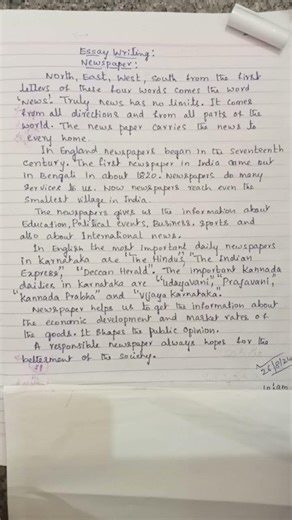 Essay Writing:
Newspaper:
North, East, West, South from the first
letters of these four words comes the word
'News'. Truly news has no limits. It comes
from all directions and from all parts of the
world. The news paper carries the news to
every home.
In England newspapers began in the Seventeenth
century. The first newspaper in India came out
in Bengali in about 1820. Newspapers do many
services to us. Now newspapers reach even the
Smallest village in India.
The newspapers gives us the information about
Education, Political events, Business, sports and
also about International news.
In English the most important daily newspapers
in Karnataka are "The Hindu", "The Indian
Express", "Deccan Herald". The important Kannada
dailies in Karnataka are "Udayavani", "Prajavani",
"Kannada Prabha" and "Vijaya Karnataka".
Newspaper helps us to get the information about
the economic development and market rates of
the goods. It shapes the public opinion.
A responsible newspaper always hopes for the
betterment of the society.